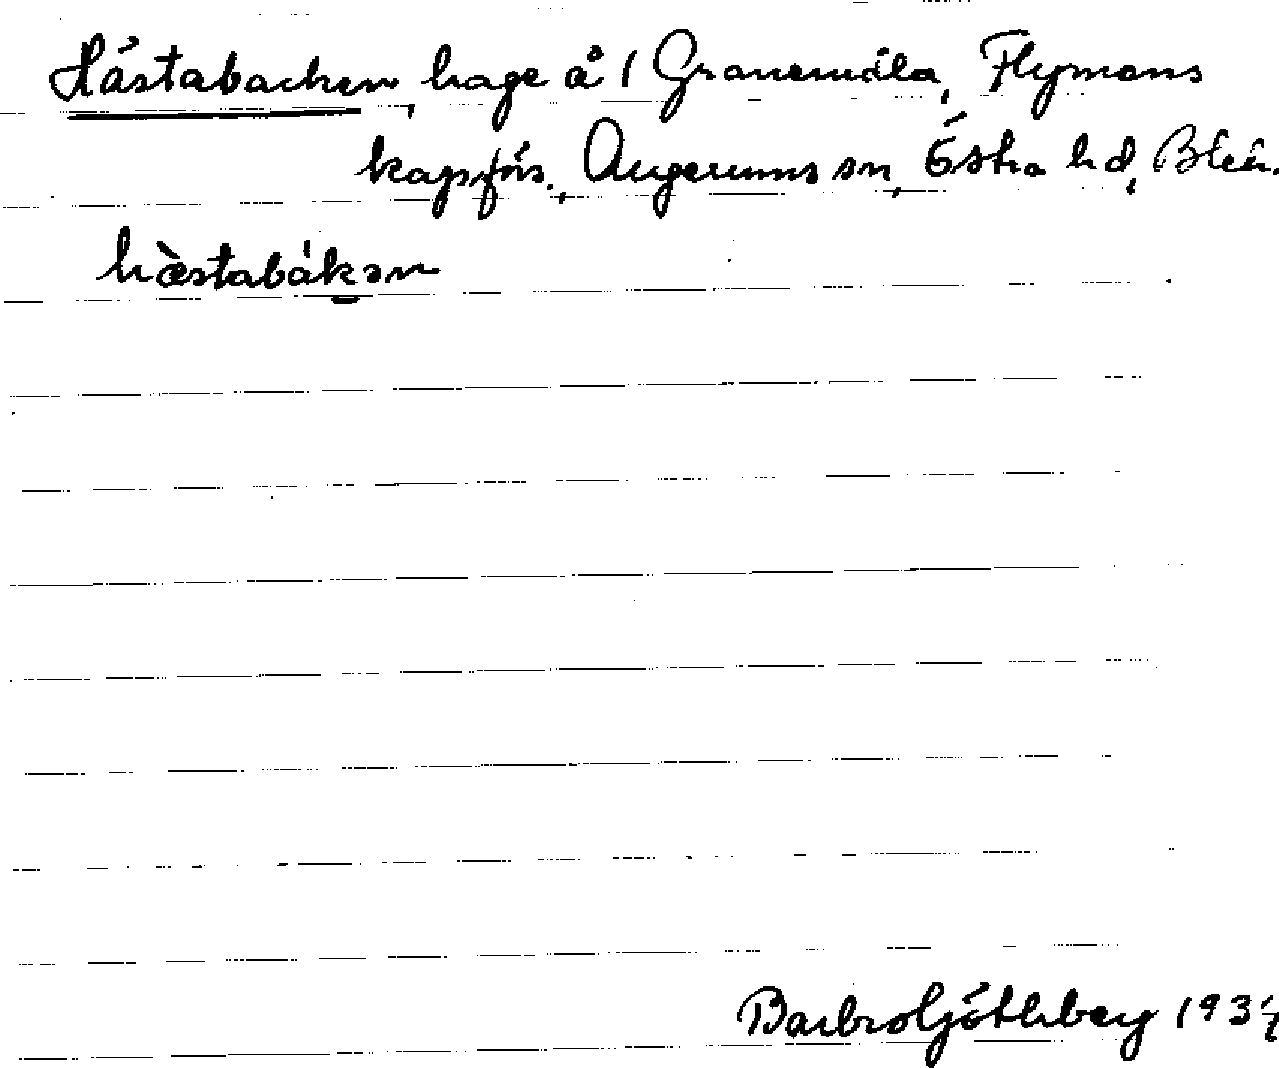 Hästabacken, hage å 1 Granemåla, Flymens
kapsförs., Augerums sn, Östra hd, Blek.
hæ̀stabákən
Barbro Göthberg 1934